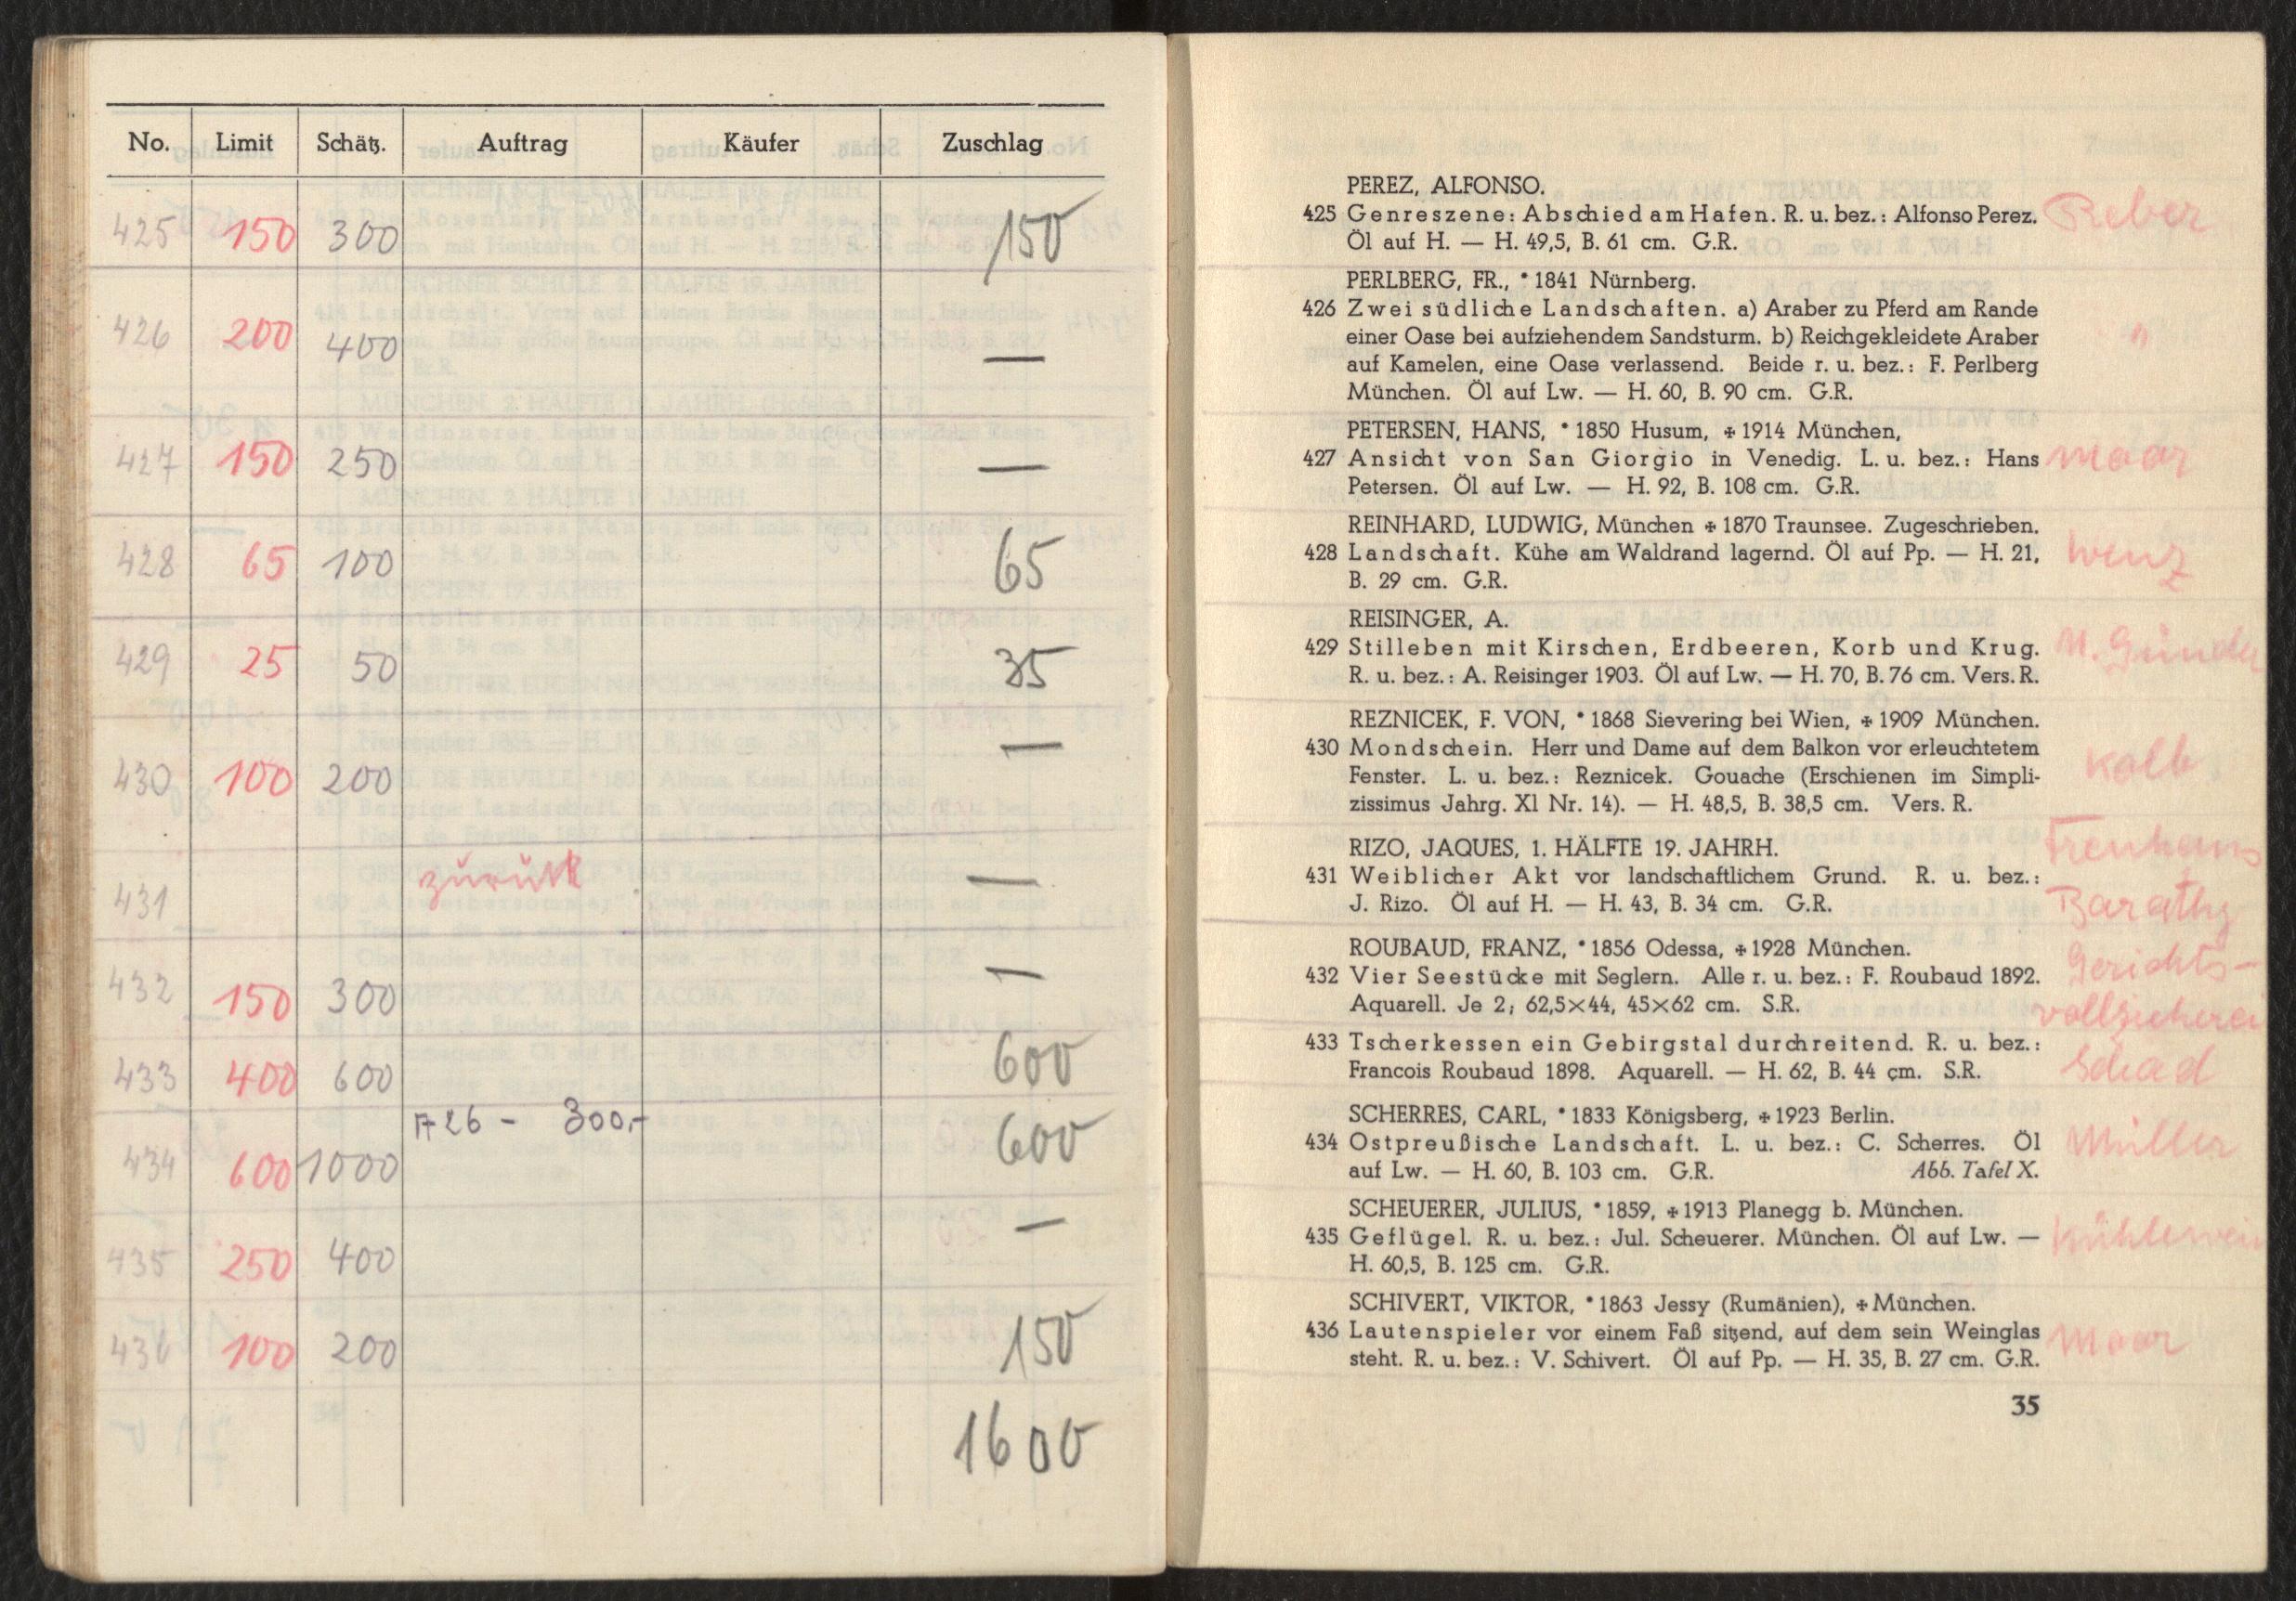 No. Limit Schätz. Auftrag Käufer Zuschlag
425 150 300 150
426 200 400 —
427 150 250 —
428 65 100 65
429 25 50 35
430 100 200 —
431 zurück —
432 150 300 —
433 400 600 600
A 26 – 300,-
434 600 1000 600
435 250 400 —
436 100 200 150
1600
PEREZ, ALFONSO.
425 Genreszene: Abschied am Hafen. R. u. bez.: Alfonso Perez. Reber
Öl auf H. — H. 49,5, B. 61 cm. G.R.
PERLBERG, FR., *1841 Nürnberg.
426 Zwei südliche Landschaften. a) Araber zu Pferd am Rande
einer Oase bei aufziehendem Sandsturm. b) Reichgekleidete Araber "
auf Kamelen, eine Oase verlassend. Beide r. u. bez.: F. Perlberg
München. Öl auf Lw. — H. 60, B. 90 cm. G.R.
PETERSEN, HANS, *1850 Husum, ✠1914 München,
427 Ansicht von San Giorgio in Venedig. L. u. bez.: Hans Maar
Petersen. Öl auf Lw. — H. 92, B. 108 cm. G.R.
REINHARD, LUDWIG, München ✠1870 Traunsee. Zugeschrieben.
428 Landschaft. Kühe am Waldrand lagernd. Öl auf Pp. — H. 21, Wenz
B. 29 cm. G.R.
REISINGER, A.
429 Stilleben mit Kirschen, Erdbeeren, Korb und Krug. M.
R. u. bez.: A. Reisinger 1903. Öl auf Lw. — H. 70, B. 76 cm. Vers. R.
REZNICEK, F. VON, *1868 Sievering bei Wien, ✠1909 München.
430 Mondschein. Herr und Dame auf dem Balkon vor erleuchtetem Kolb
Fenster. L. u. bez.: Reznicek. Gouache (Erschienen im Simpli-
zissimus Jahrg. XI Nr. 14). — H. 48,5, B. 38,5 cm. Vers. R.
RIZO, JAQUES, 1. HÄLFTE 19. JAHRH.
431 Weiblicher Akt vor landschaftlichem Grund. R. u. bez.:
J. Rizo. Öl auf H. — H. 43, B. 34 cm. G.R. Barathy
ROUBAUD, FRANZ, *1856 Odessa, ✠1928 München.
432 Vier Seestücke mit Seglern. Alle r. u. bez.: F. Roubaud 1892. Gerichts-
Aquarell. Je 2; 62,5×44, 45×62 cm. S.R. vollzieherei
433 Tscherkessen ein Gebirgstal durchreitend. R. u. bez.: Schad
Francois Roubaud 1898. Aquarell. — H. 62, B. 44 cm. S.R.
SCHERRES, CARL, *1833 Königsberg, ✠1923 Berlin.
434 Ostpreußische Landschaft. L. u. bez.: C. Scherres. Öl Müller
auf Lw. — H. 60, B. 103 cm. G.R. Abb. Tafel X.
SCHEUERER, JULIUS, *1859, ✠1913 Planegg b. München.
435 Geflügel. R. u. bez.: Jul. Scheuerer. München. Öl auf Lw. — Kühlewein
H. 60,5, B. 125 cm. G.R.
SCHIVERT, VIKTOR, *1863 Jessy (Rumänien), ✠München.
436 Lautenspieler vor einem Faß sitzend, auf dem sein Weinglas Maar
steht. R. u. bez.: V. Schivert. Öl auf Pp. — H. 35, B. 27 cm. G.R.
35